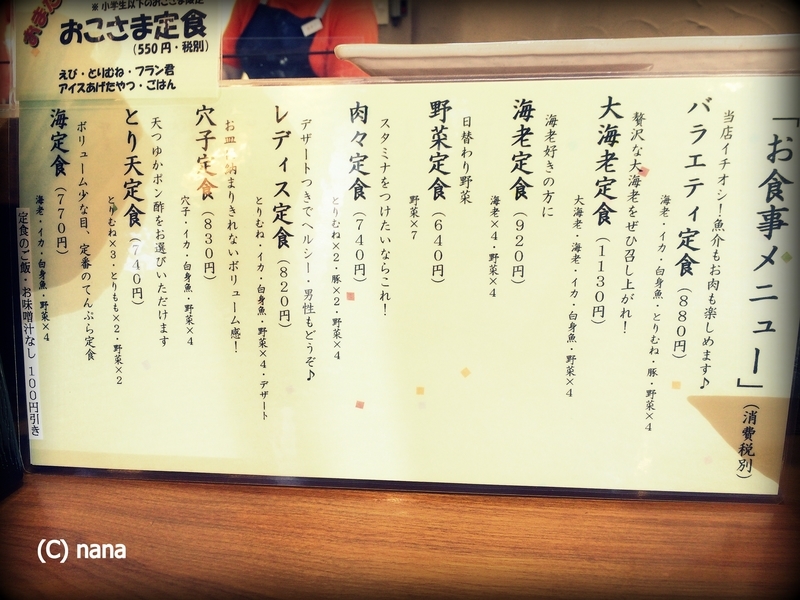 ※小学生以下のお客様限定
おこさま定食
(550円・税別)
えび・とりむね・フラン君
アイスあげたやつ・ごはん
「お食事メニュー」(消費税別)
当店イチオシ!魚介もお肉も楽しめます♪
バラエティ定食(880円)
海老・イカ・白身魚・とりむね・豚・野菜×4
贅沢な大海老をぜひ召し上がれ!
大海老定食(1130円)
大海老・海老・イカ・白身魚・野菜×4
海老好きの方に
海老定食(920円)
海老×4・野菜×4
日替わり野菜
野菜定食(640円)
野菜×7
スタミナをつけたいならこれ!
肉々定食(740円)
とりむね×2・豚×2・野菜×4
デザートつきでヘルシー・男性もどうぞ♪
レディス定食(820円)
とりむね・イカ・白身魚・野菜×4・デザート
お皿に納まりきれないボリューム感!
穴子定食(830円)
穴子・イカ・白身魚・野菜×4
天つゆかポン酢をお選びいただけます
とり天定食(740円)
とりむね×3・とりもも×2・野菜×2
ボリューム少な目、定番のてんぷら定食
海定食(770円)
海老・イカ・白身魚・野菜×4
定食のご飯・お味噌汁なし 100円引き
(C) nana